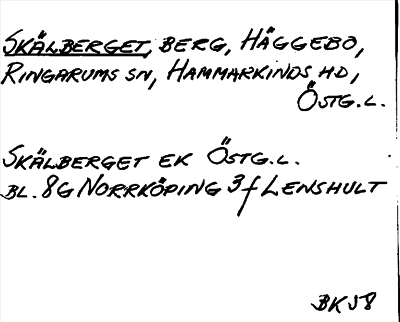 SKÄLBERGET, BERG, HÄGGEBO,
RINGARUMS SN, HAMMARKINDS HD,
ÖSTG.L.
SKÄLBERGET EK ÖSTG.L.
BL. 8G NORRKÖPING 3f LENSHULT
BKJ8